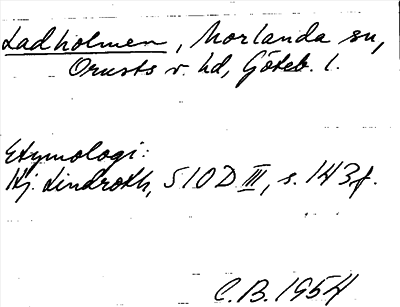 Ladholmen, Morlanda sn,
Orusts v. hd, Göteb. l.
Etymologi:
Hj. Lindroth, SIOD III, s. 143f.
C.B. 1954